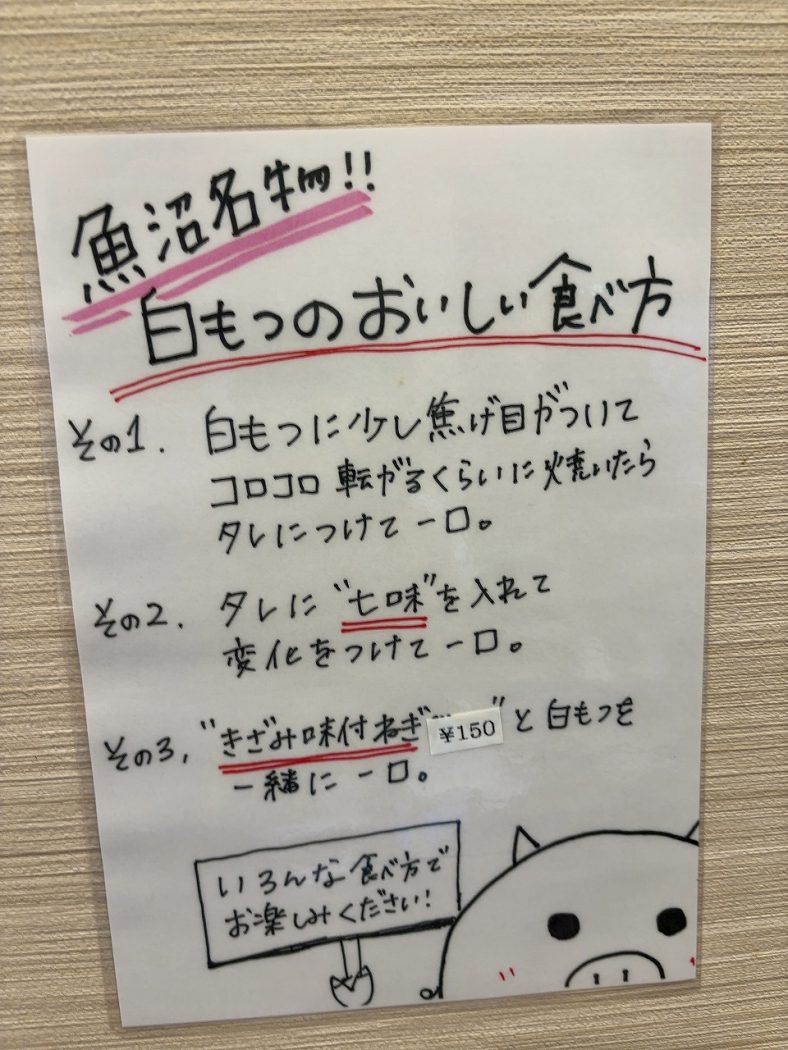 魚沼名物!!
白もつのおいしい食べ方
その1. 白もつに少し焦げ目がついて
コロコロ転がるくらいに焼いたら
タレにつけて一口。
その2. タレに"七味"を入れて
変化をつけて一口。
その3. "きざみ味付ねぎ ¥150"と白もつを
一緒に一口。
いろんな食べ方で
お楽しみください!